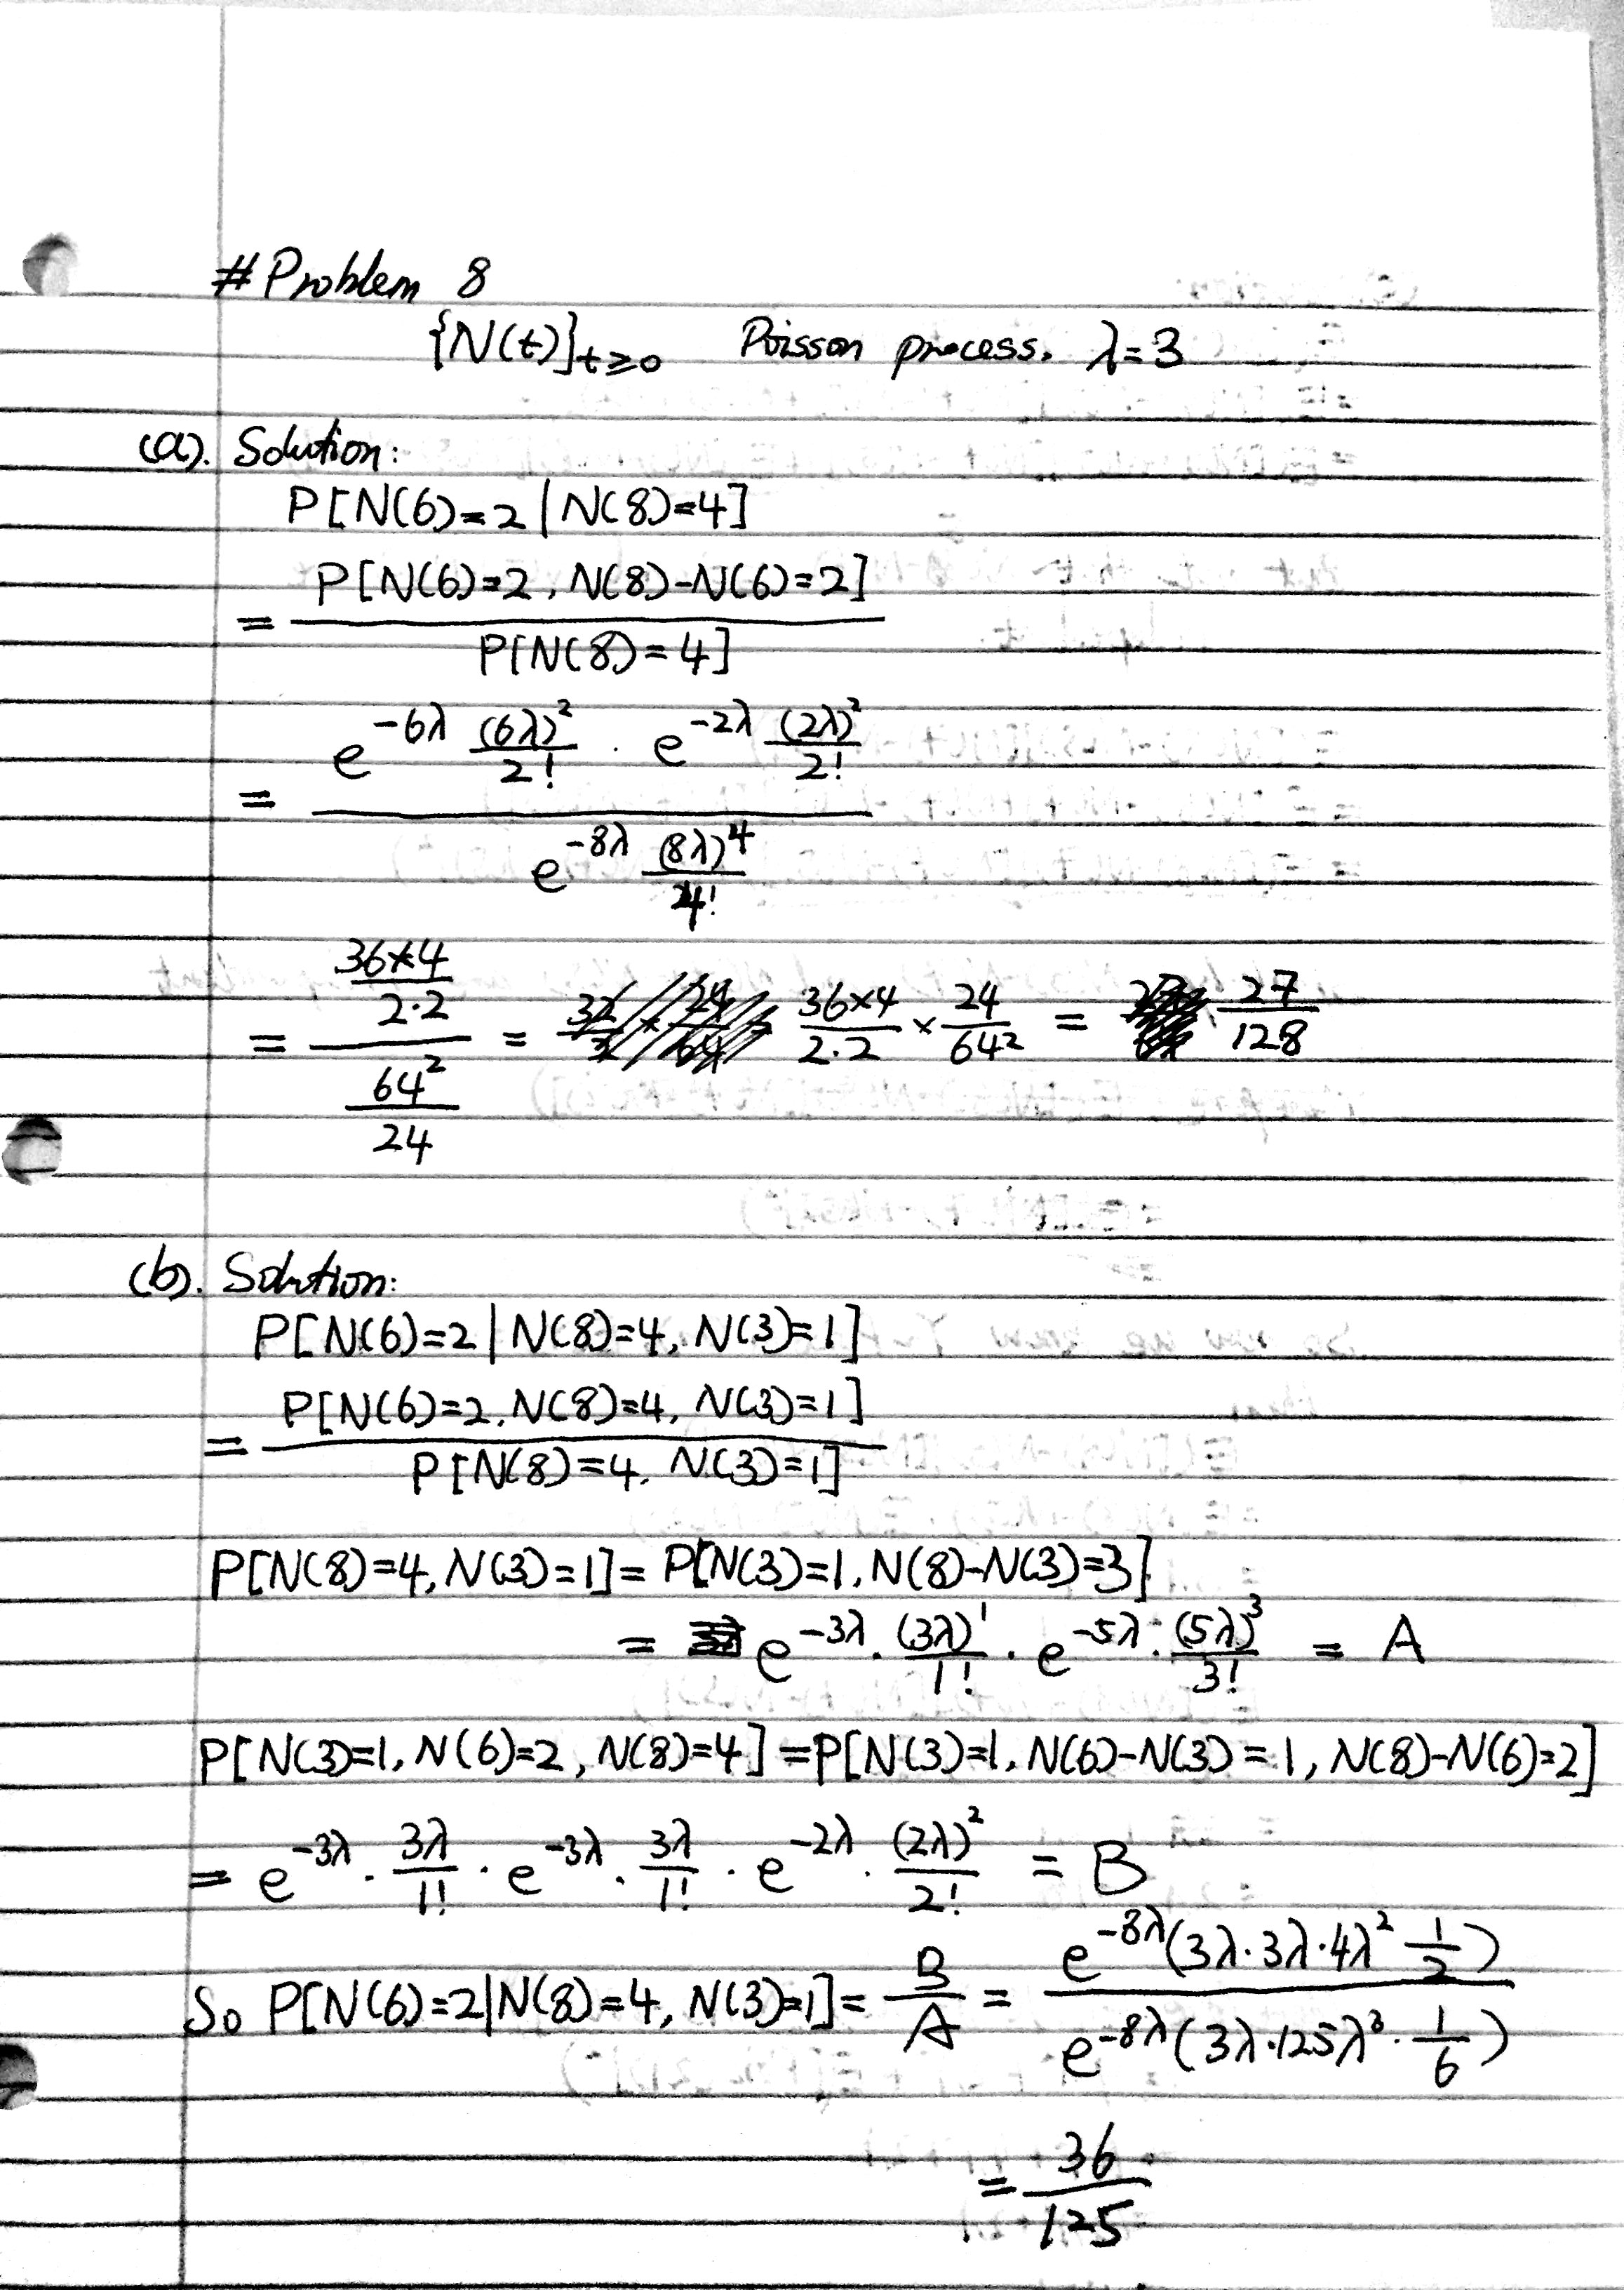 # Problem 8
{N(t)}_{t≥0} Poisson process. λ=3
(a). Solution:
P[N(6)=2 | N(8)=4]
= \frac{P[N(6)=2, N(8)-N(6)=2]}{P[N(8)=4]}
= \frac{e^{-6λ} \frac{(6λ)^2}{2!} · e^{-2λ} \frac{(2λ)^2}{2!}}{e^{-8λ} \frac{(8λ)^4}{4!}}
= \frac{\frac{36×4}{2·2}}{\frac{64^2}{24}} = \frac{36×4}{2·2} × \frac{24}{64^2} = \frac{27}{128}
(b). Solution:
P[N(6)=2 | N(8)=4, N(3)=1]
= \frac{P[N(6)=2, N(8)=4, N(3)=1]}{P[N(8)=4, N(3)=1]}
P[N(8)=4, N(3)=1] = P[N(3)=1, N(8)-N(3)=3]
= e^{-3λ} · \frac{(3λ)^1}{1!} · e^{-5λ} · \frac{(5λ)^3}{3!} = A
P[N(3)=1, N(6)=2, N(8)=4] = P[N(3)=1, N(6)-N(3)=1, N(8)-N(6)=2]
= e^{-3λ} · \frac{3λ}{1!} · e^{-3λ} · \frac{3λ}{1!} · e^{-2λ} · \frac{(2λ)^2}{2!} = B
So P[N(6)=2 | N(8)=4, N(3)=1] = \frac{B}{A} = \frac{e^{-8λ}(3λ·3λ·4λ^2 \frac{1}{2})}{e^{-8λ}(3λ·125λ^3·\frac{1}{6})}
= \frac{36}{125}